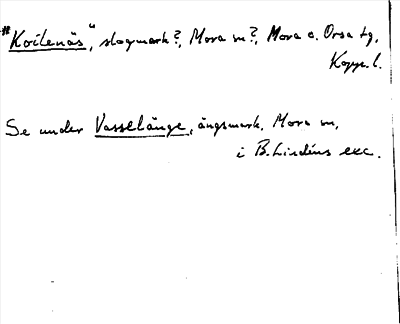 "Koilenäs", slogmark?, Mora sn?, Mora o. Orsa tg,
Kopp. l.
Se under Vasselänge, ängsmark, Mora sn,
i B. Lindéns exc.